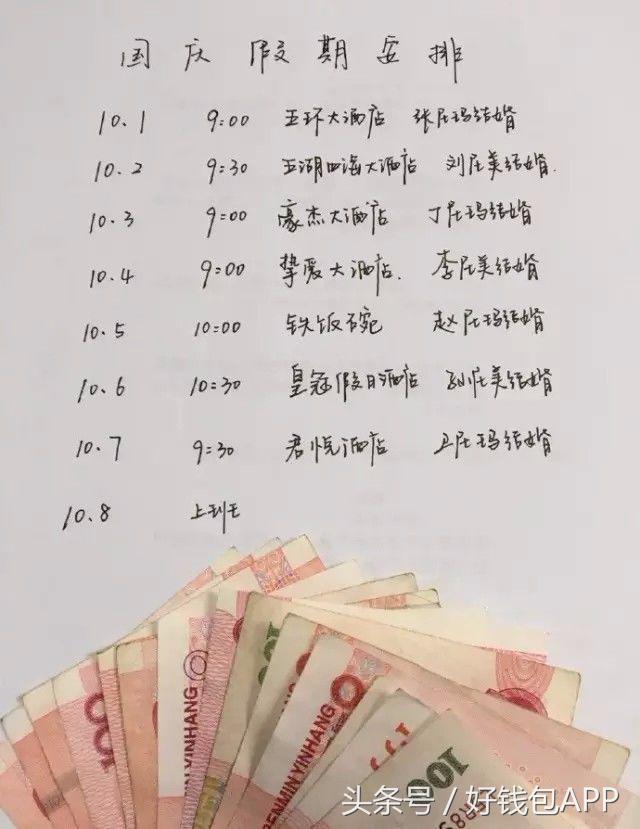 国庆假期安排
10.1 9:00 五环大酒店 张尼玛结婚
10.2 9:30 五湖四海大酒店 刘尼美结婚.
10.3 9:00 豪杰大酒店 丁尼玛结婚
10.4 9:00 挚爱大酒店. 李尼美结婚
10.5 10:00 铁饭碗 赵尼玛结婚
10.6 10:30 皇冠假日酒店 孙尼美结婚
10.7 9:30 君悦酒店 卫尼玛结婚
10.8 上班
100
YINHANG
100
ENMINYINHANG
100
头条号/好钱包APP